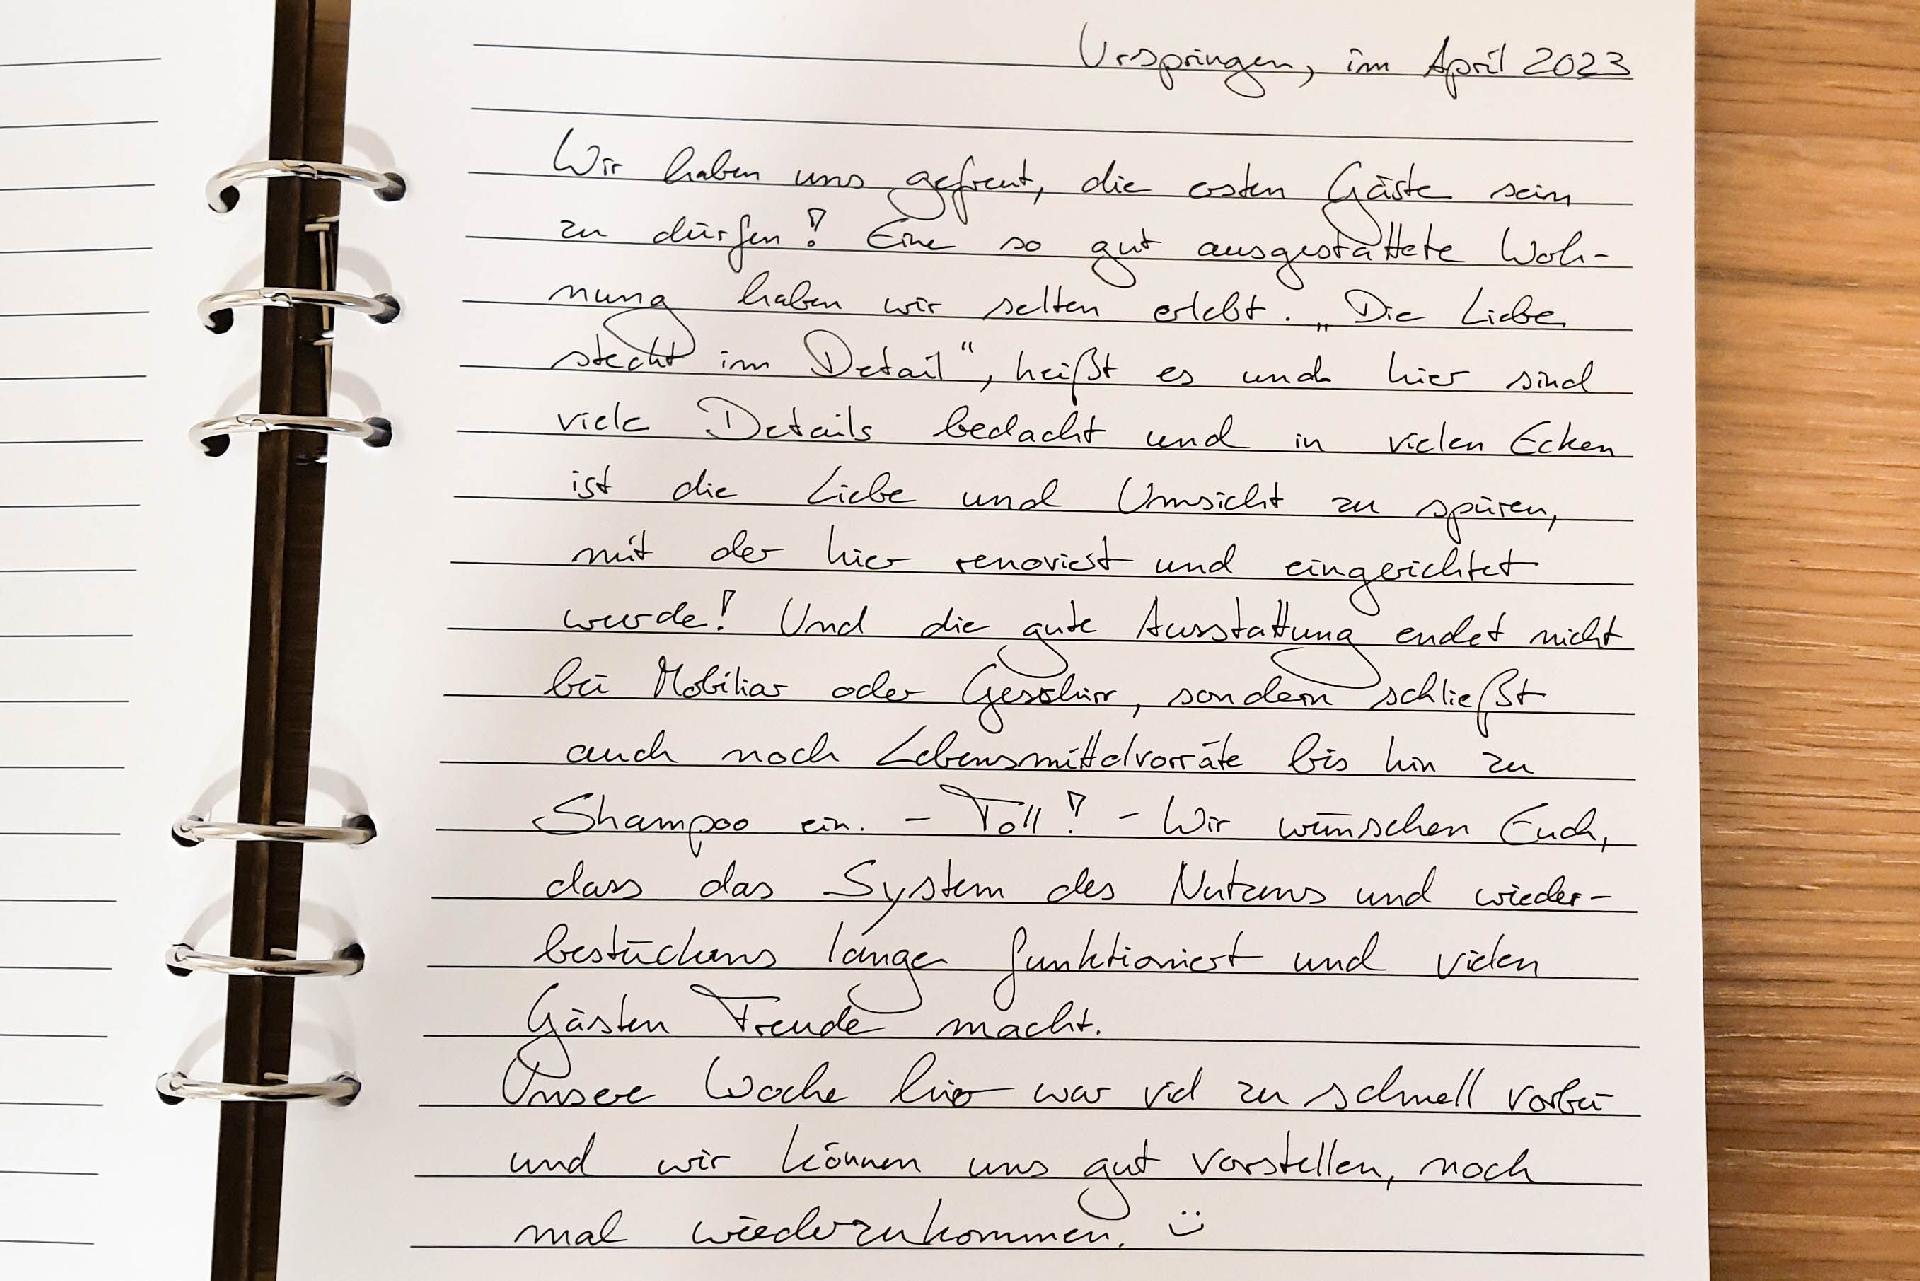 Urspringen, im April 2023
Wir haben uns gefreut, die ersten Gäste sein
zu dürfen! Eine so gut ausgestattete Woh-
nung haben wir selten erlebt. „Die Liebe
steckt im Detail“, heißt es und hier sind
viele Details bedacht und in vielen Ecken
ist die Liebe und Umsicht zu spüren,
mit der hier renoviert und eingerichtet
wurde! Und die gute Ausstattung endet nicht
bei Mobiliar oder Geschirr, sondern schließt
auch noch Lebensmittelvorräte bis hin zu
Shampoo ein. - Toll! - Wir wünschen Euch,
dass das System des Nutzens und wieder-
bestückens lange funktioniert und vielen
Gästen Freude macht.
Unsere Woche hier war viel zu schnell vorbei
und wir können uns gut vorstellen, noch
mal wiederzukommen. ☺